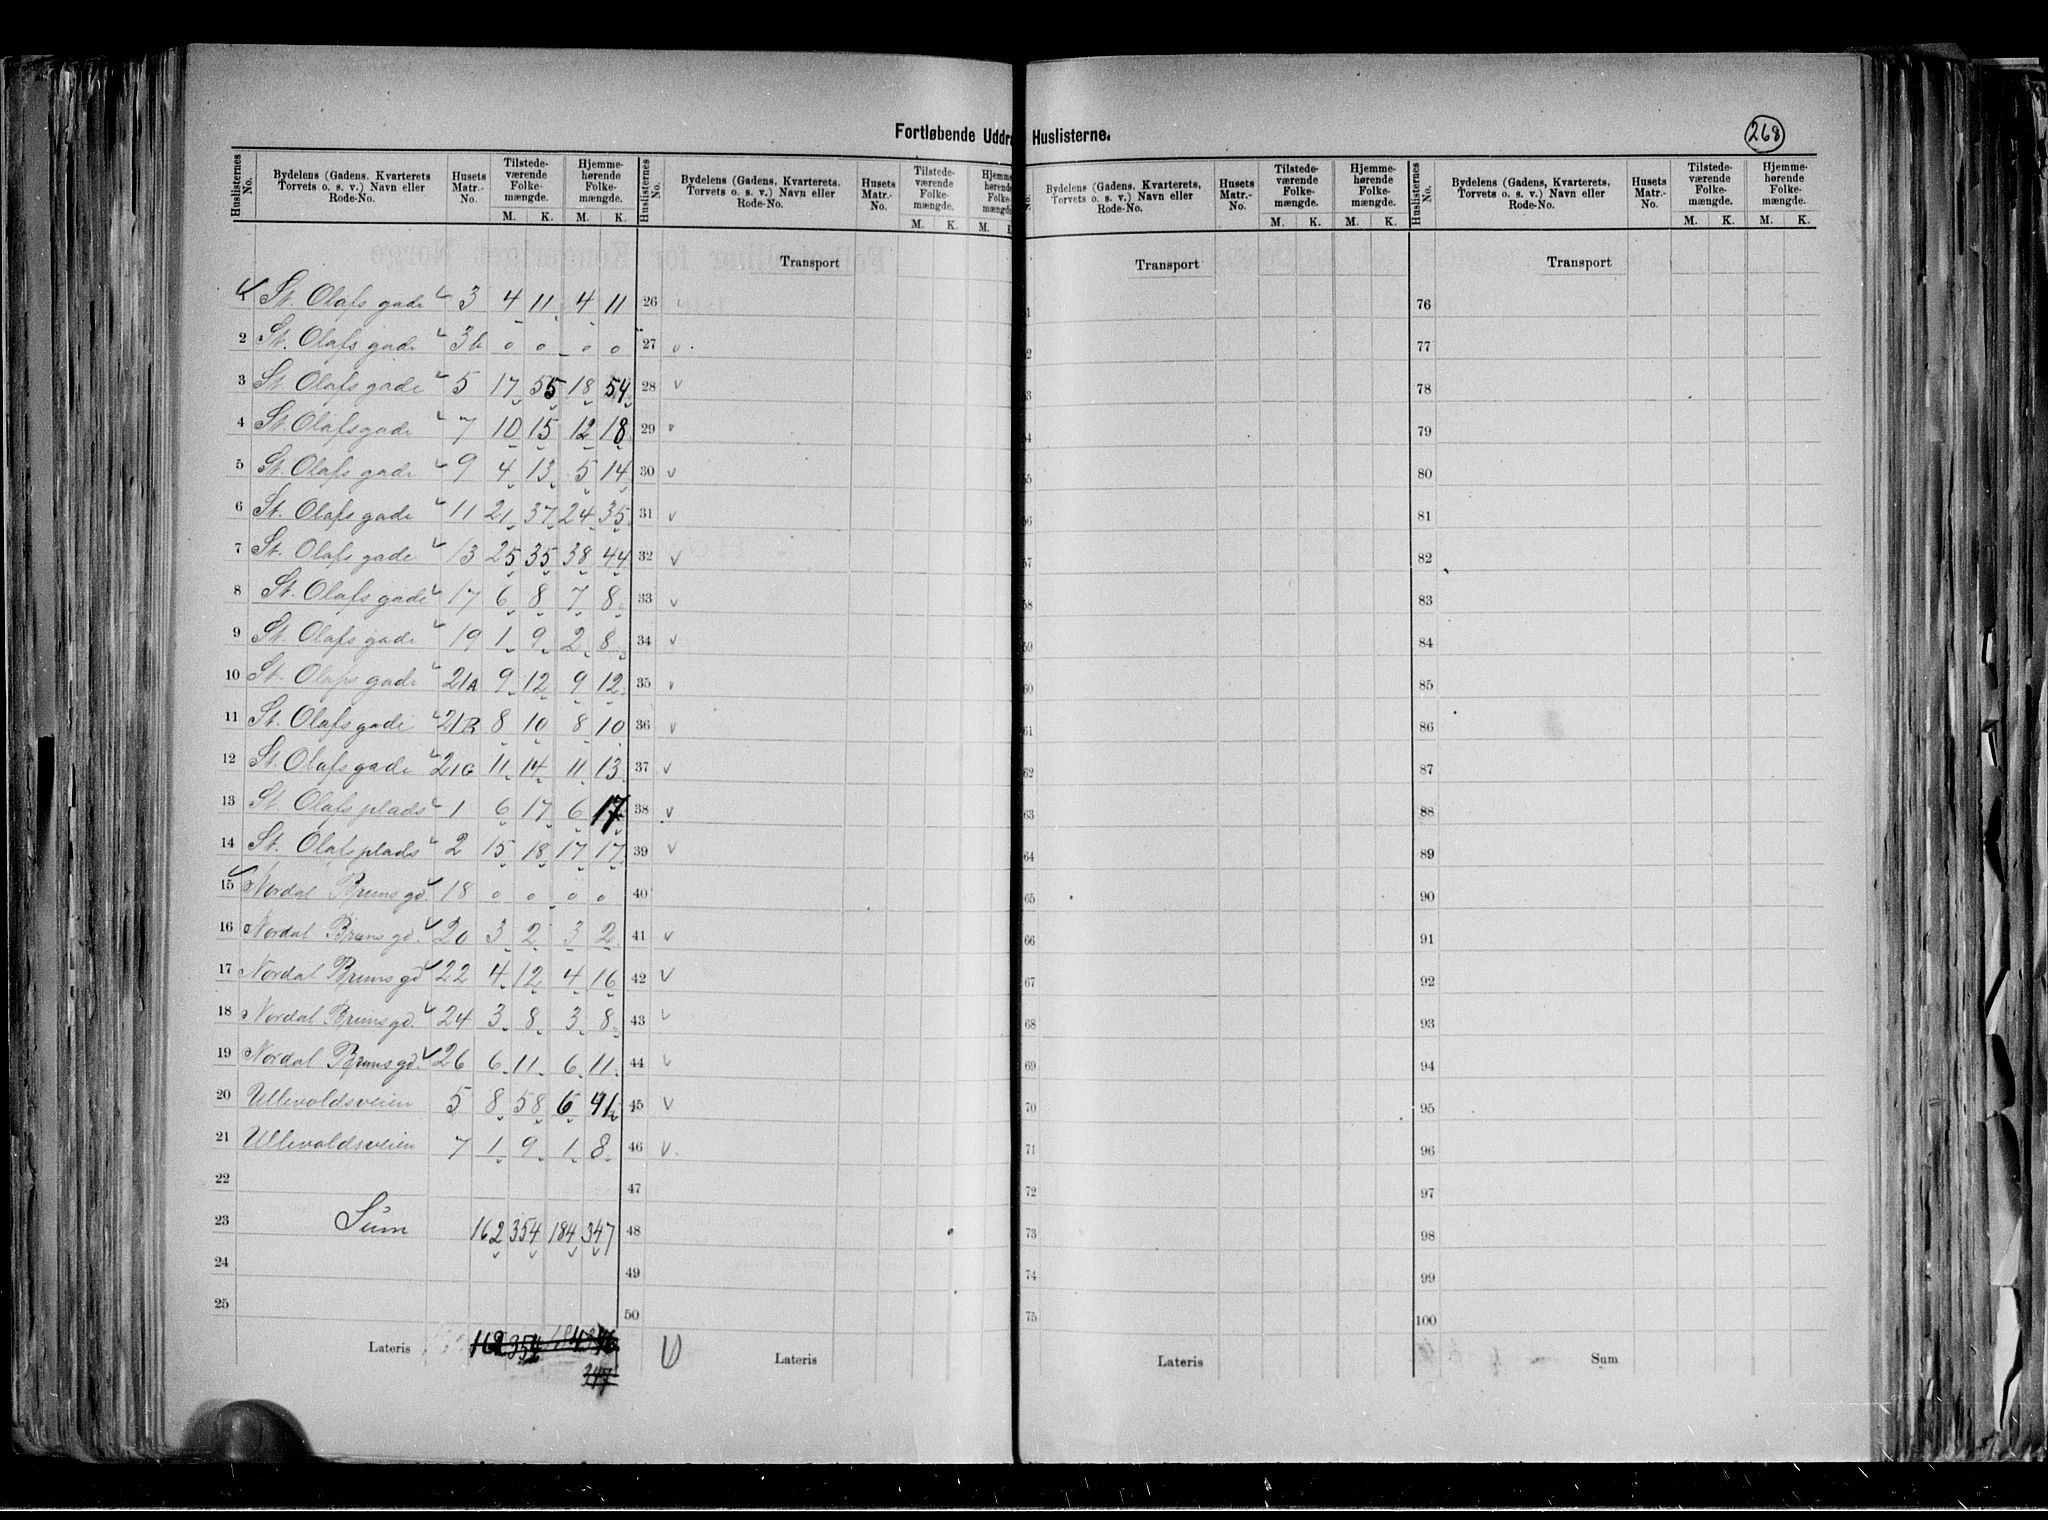 268
Fortløbende Uddra Huslisterne.
Huslisternes No. Bydelens (Gadens, Kvarterets Torvets o. s. v.) Navn eller Rode-No. Husets Matr.-No. Tilstedeværende Folkemængde. M. K. Hjemmehørende Folkemængde. M. K.
1 St. Olafs gade 3 4 11 4 11
2 St. Olafs gade 3b o o o o
3 St. Olafs gade 5 17 55 18 54
4 St. Olafs gade 7 10 15 12 18
5 St. Olafs gade 9 4 13 5 14
6 St. Olafs gade 11 21 37 24 35
7 St. Olafs gade 13 25 35 38 44
8 St. Olafs gade 17 6 8 7 8
9 St. Olafs gade 19 1 9 2 8
10 St. Olafs gade 21A 9 12 9 12
11 St. Olafs gade 21B 8 10 8 10
12 St. Olafs gade 21C 11 14 11 13
13 St. Olafs plads 1 6 17 6 17
14 St. Olafs plads 2 15 18 17 17
15 Nordal Bruns gd. 18 o o o o
16 Nordal Bruns gd. 20 3 2 3 2
17 Nordal Bruns gd 22 4 12 4 16
18 Nordal Bruns gd. 24 3 8 3 8
19 Nordal Bruns gd. 26 6 11 6 11
20 Ullevoldsveien 5 8 58 6 41
21 Ullevoldsveien 7 1 9 1 8
22
23 Sum 162 354 184 347
24
25
Lateris 162 354 184 346
347
Huslisternes No. Bydelens (Gadens, Kvarterets, Torvets o. s. v.) Navn eller Rode-No. Husets Matr.-No. Tilstedeværende Folkemængde. M. K. Hjemmehørende Folkemængde. M.
Transport
26
27
28
29
30
31
32
33
34
35
36
37
38
39
40
41
42
43
44
45
46
47
48
49
50
Lateris
No. Bydelens (Gadens, Kvarterets, Torvets o. s. v.) Navn eller Rode-No. Husets Matr.-No. Tilstedeværende Folkemængde. M. K. Hjemmehørende Folkemængde. M. K.
Transport
51
52
53
54
55
56
57
58
59
60
61
62
63
64
65
66
67
68
69
70
71
72
73
74
75
Lateris
Huslisternes No. Bydelens (Gadens, Kvarterets, Torvets o. s. v.) Navn eller Rode-No. Husets Matr.-No. Tilstedeværende Folkemængde. M. K. Hjemmehørende Folkemængde. M. K.
Transport
76
77
78
79
80
81
82
83
84
85
86
87
88
89
90
91
92
93
94
95
96
97
98
99
100
Sum